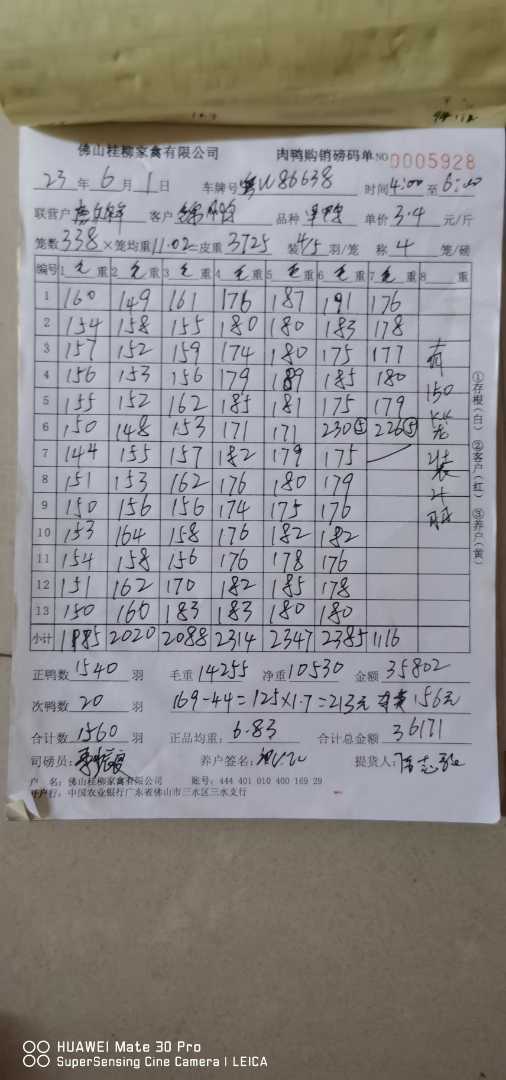 佛山桂柳家禽有限公司 肉鸭购销磅码单 NO 0005928
23 年 6 月 1 日 车牌号 粤W86638 时间 4:00 至 6:00
联营户 客户 品种 单价 3.4 元/斤
笼数 338 × 笼均重 11.02 = 皮重 3725 装 4/5 羽/笼 称 4 笼/磅
编号 1 毛 重 2 毛 重 3 毛 重 4 毛 重 5 毛 重 6 毛 重 7 毛 重 8 重
1 160 149 161 176 187 191 176
2 154 158 155 180 180 183 178
3 157 152 159 174 180 175 177
4 156 153 156 179 189 185 180
5 155 152 162 185 181 175 179
6 150 148 153 171 171 230⑤ 226⑤
7 144 155 157 182 179 175
8 151 153 162 176 180 179
9 150 156 156 174 175 176
10 153 164 158 176 182 182
11 154 158 156 176 178 176
12 151 162 170 182 185 178
13 150 160 183 183 180 180
小计 1985 2020 2088 2314 2347 2385 1116
有150笼装4羽
①存根(白) ②客户(红) ③养户(黄)
正鸭数 1540 羽 毛重 14255 净重 10530 金额 35802
次鸭数 20 羽 169-44=125×1.7=213元 156元
合计数 1560 羽 正品均重: 6.83 合计总金额 36171
司磅员: 养户签名: 提货人:
户 名: 佛山桂柳家禽有限公司 账号: 444 401 010 400 169 29
开户行: 中国农业银行广东省佛山市三水区三水支行
HUAWEI Mate 30 Pro
SuperSensing Cine Camera | LEICA